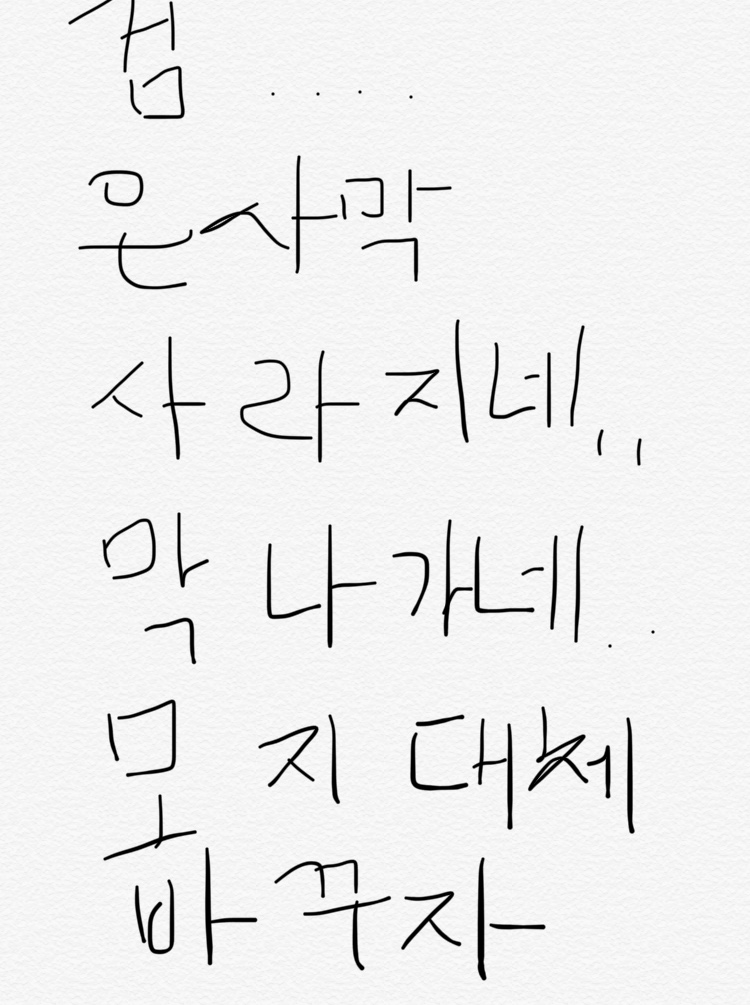 검 ....
은사막
사라지네,,
막 나가네..
모 지 대체
바꾸자